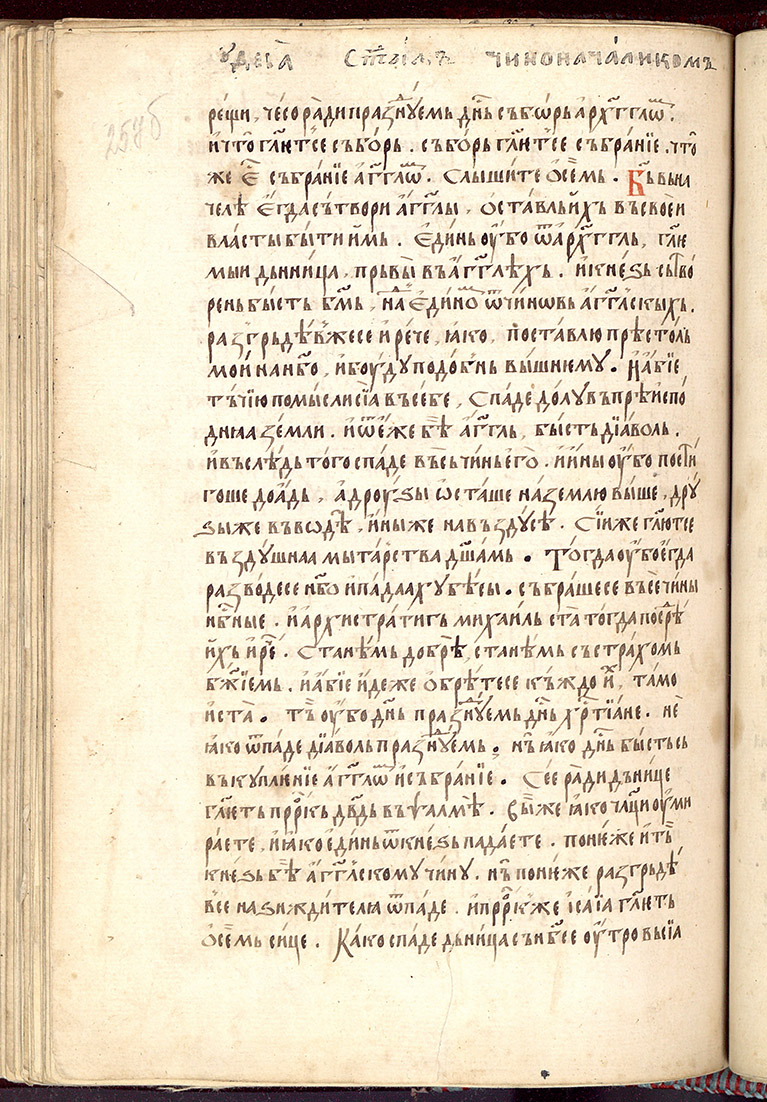 чюдеса ст҃ымь чиноначалнкомь
257б
рещи, чесо ради празнꙋемь дн҃ь събѡрь арⷯаггл҃ѡⷡ.
и что гл҃ютсе съборь. съборь гл҃ютсе събранїе. что
же еⷭ҇ събранїе агг҃лѡⷡ. Слышите ѡсемь. Въ нача
челѣ егда сътвори агг҃лы, оставль ихъ въ своеи
власты быти имь. Единь оубо ѿ арⷯаггль, гл҃ю
мыи дьнница, прьвы въ агг҃лѣхь. и кнезь сьтво
рень бысть бм҃ь, надь единѣмь ѿ чиновь агг҃лскыхь.
разгрьдѣвжесе и рече, ꙗко, поставлю прѣстоль
мои на нб҃о, и боудꙋ подобьнь вышнемꙋ. И абїе
тьчїю помыслисїа въ себе, Спаде долꙋ въ прѣиспо
днꙗа земли. и ѿнеⷧже бѣ агг҃ль, бысть дїаволь.
и въ слѣдь того спаде въсь чинь его. и ины оубо пости
гоше до адь, а дроузы ѡсташе на землю выше, дрꙋ
зыже въ водѣ, ины же на въздꙋсѣ. Сїиже гл҃ютсе
въздꙋшнаа мытарства дш҃амь. Тогда оубо егда
разводесе нб҃о и падаахꙋ бѣсы. събрашесе въсе чины
нбⷭ҇ные. и архистратигь михаиль ста тогда посрⷣѣ
ихь и реⷱ҇. Станѣмь добрѣ, станѣмь съ страхомь
бж҃їемь. и абїе идеже обрѣтесе къждо иⷯ, тамо
и ста. Тъ оубо дн҃ь празнꙋемь дн҃ь хрⷭ҇тїане. не
ꙗко ѿпаде дїаволь празнꙋемь, нь ꙗко дн҃ь бысть сь
въкꙋплѥнїе агг҃лѡⷡ и събранїе. Сее ради дьнице
гл҃еть прⷪ҇ркь дв҃дь въ ѱалмѣ. Выже ꙗко чл҃ци оуми
раете, и ꙗко единь ѿ кнезь падаете. понѥже и тъ
кнезь бѣ агг҃лскомꙋ чинꙋ. нь понѥже разгрьдѣ
все на зиждителꙗ ѿпаде. и прⷪ҇ркже ісаїа гл҃еть
ѡсемь сице. Како спаде дьница съ нбⷭ҇е оутро высїа